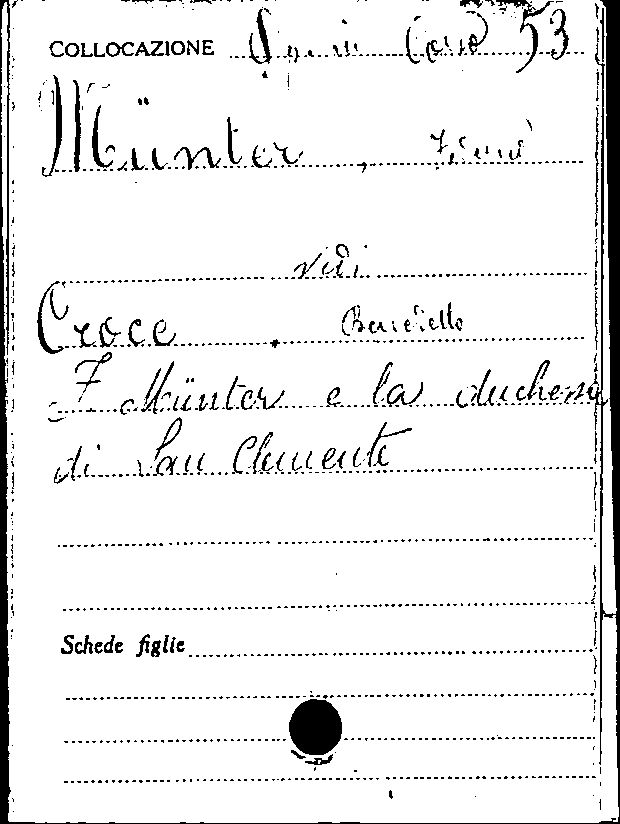 COLLOCAZIONE 53
Münter,
vedi
Croce, Benedetto
F. Münter e la duchessa
di San Clemente
Schede figlie